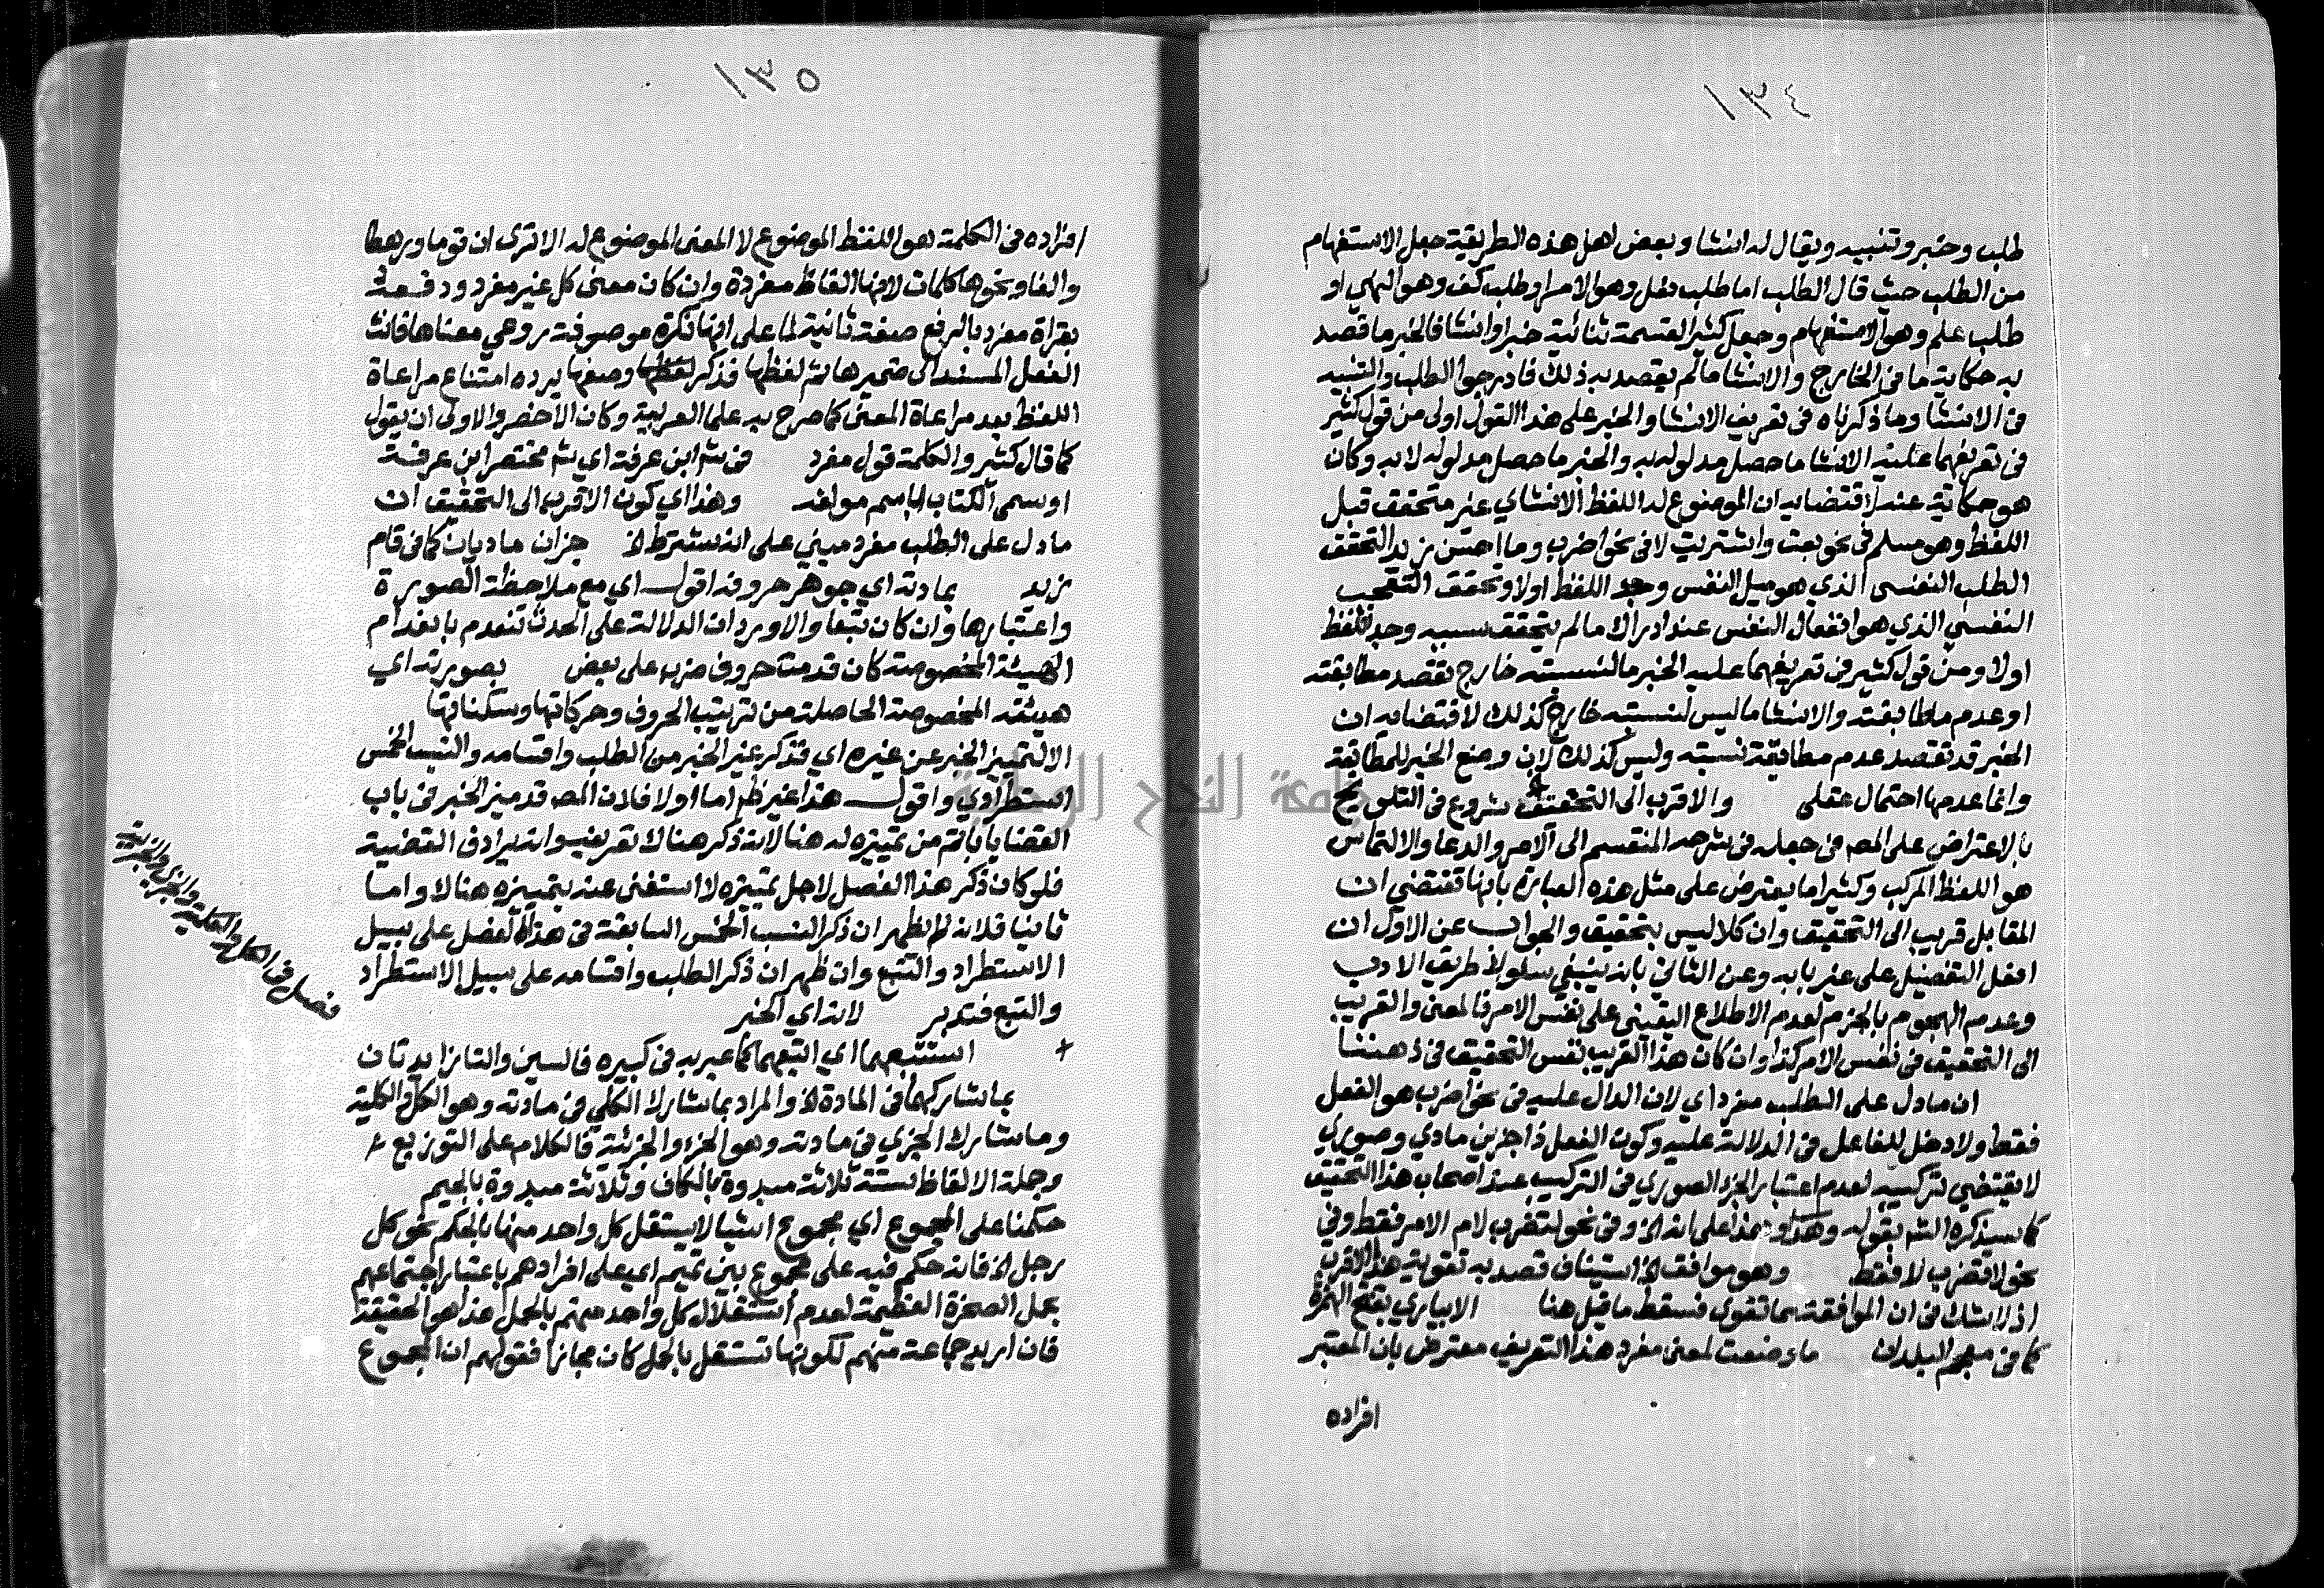 ١٣٤
طلب وخبر وتنبيه ويقال له انشا وبعض اهل هذه الطريقة جعل الاستفهام
من الطلب حيث قال الطلب اما طلب فعل وهو الامر او طلب كف وهو النهي او
طلب علم وهو الاستفهام وجعل كثير القسمة ثنائية خبرا وانشا فالخبر ما قصد
به حكاية ما في الخارج والانشا ما لم يقصد به ذلك فادرجوا الطلب والتنبيه
في الانشا وما ذكرناه في تعريف الانشا والخبر على هذا القول اولى من قول كثير
في تعريفهما عليه الانشا ما حصل مدلوله به والخبر ما حصل مدلوله لا به وكان
هو حكاية عنه لاقتضايه ان الموضوع له اللفظ الانشاي غير متحقق قبل
اللفظ وهو مسلم في نحو بعت واشتريت لا في نحو اضرب وما احسن زيد التحقق
الطلب النفسى الذي هو ميل النفس وجد اللفظ اولا وتحقق التعجب
النفسي الذي هو انفعال النفس عند ادراك ما لم يتحقق سببه وجد اللفظ
اولا ومن قول كثير في تعريفهما عليه الخبر ما لنسبته خارج تقصد مطابقته
او عدم مطابقته والانشا ما ليس لنسبته خارج كذلك لاقتضايه ان
المخبر قد تقصد عدم مطابقة نسبته وليس كذلك لان وضع الخبر للمطابقة
وانما عدمها احتمال عقلى والاقرب الى التحقيق شروع في التلويح
بالاعتراض على المص في جعله في شرحه المنقسم الى الامر والدعا والالتماس
هو اللفظ المركب وكثيرا ما يعترض على مثل هذه العبارة بانها تقتضي ان
المقابل قريب الى التحقيق وان كلا ليس بتحقيق والجواب عن الاول ان
افعل التفضيل على غير بابه وعن الثاني بانه ينبغي سلوك طريق الادب
وعدم الهجوم بالجزم لعدم الاطلاع اليقيني على نفس الامر فالمعنى والقريب
الى التحقيق في نفس الامر كذا وان كان هذا القريب نفس التحقيق في ذهننا
ان ما دل على الطلب مفرد اي لان الدال عليه في نحو اضرب هو الفعل
فقط ولا دخل للفاعل في الدلالة عليه وكون الفعل ذا جزين مادي وصوري
لا يقتضي تركيبه لعدم اعتبار الجزء الصوري في التركيب عند اصحاب هذا التحقيق
كما سيذكره الشم بقوله وهذا على انه الخ وفي نحو لتضرب لام الامر فقط وفي
نحو لا تضرب لا فقط وهو موافق الخ استيناف قصد به تقوية هذا الاقرب
اذ لا شك في ان الموافقة مما تقوى فسقط ما قيل هنا الابياري بفتح الهمزة
كما في معجم البلدان ما وضعت لمعنى مفرد هذا التعريف معترض بان المعتبر
افراده
١٣٥
افراده في الكلمة هو اللفظ الموضوع لا المعنى الموضوع له الا ترى ان قوما ورهطا
والفا ونحوها كلمات لانها الفاظ مفردة وان كان معنى كل غير مفرد ودفعه
بقراة مفرد بالرفع صفة ثانية لما على انها نكرة موصوفة روعي معناها فانث
الفعل المسند الى ضميرها ثم لفظها فذكر لفظها وصفها يرده امتناع مراعاة
اللفظ بعد مراعاة المعنى كما صرح به علما العربية وكان الاخضر والاولى ان يقول
كما قال كثير والكلمة قول مفرد في شم ابن عرفة اي شم مختصر ابن عرفة
او سمى الكتاب باسم مولفه وهذا اي كون الاقرب الى التحقيق ان
ما دل على الطلب مفرد مبني على انه يشترط الخ جزان ماديان كما في قام
زيد بمادته اي جوهر حروفه اقول اي مع ملاحظة الصورة
واعتبارها وان كان تبعا والا ورد ان الدلالة على الحدث تنعدم بانعدام
الهيئة المخصوصة كان قدمت حروف ضرب على بعض بصورته اي
هيئته المخصوصة الحاصلة من ترتيب الحروف وحركاتها وسكناتها
الا لتمييز الخبر عن غيره اي فذكر غير الخبر من الطلب واقسامه والنسب الخمس
استطرادي واقول هذا غير ظم اما اولا فلان المص قد ميز الخبر في باب
القضايا باتم من تمييزه له هنا لانه ذكر هناك تعريفه وانه يرادف القضية
فلو كان ذكر هذا الفصل لاجل تمييزه لاستغنى عنه بتمييزه هنالك واما
ثانيا فلانه لم يظهر ان ذكر النسب الخمس السابقة في هذا الفصل على سبيل
الاستطراد والتبع وان ظهر ان ذكر الطلب واقسامه على سبيل الاستطراد
والتبع فتدبر لانه اي الخبر
استتبعهما اي اتبعهما كما عبر به في كبيره فالسين والتا زايدتان
بما شاركهما في المادة الخ والمراد بما شارك الكلي في مادته وهو الكل والكلية
وما شارك الجزي في مادته وهو الجزء والجزئية فالكلام على التوزيع
وجملة الالفاظ ستة ثلاثة مبدوة بالكاف وثلاثة مبدوة بالجيم
حكمنا على المجموع اي مجموع اشيا لا يستقل كل واحد منها بالحكم نحو كل
رجل الخ فانه حكم فيه على مجموع بني تميم اي على افرادهم باعتبار اجتماعهم
بحمل الصخرة العظيمة لعدم استقلال كل واحد منهم بالحمل هذا هو الحقيقة
فان اريد جماعة منهم لكونها تستقل بالحمل كان مجازا فقولهم ان المجموع
فصل في الكل والكلية والجزء والجزئية
جامعة النجاح الوطنية